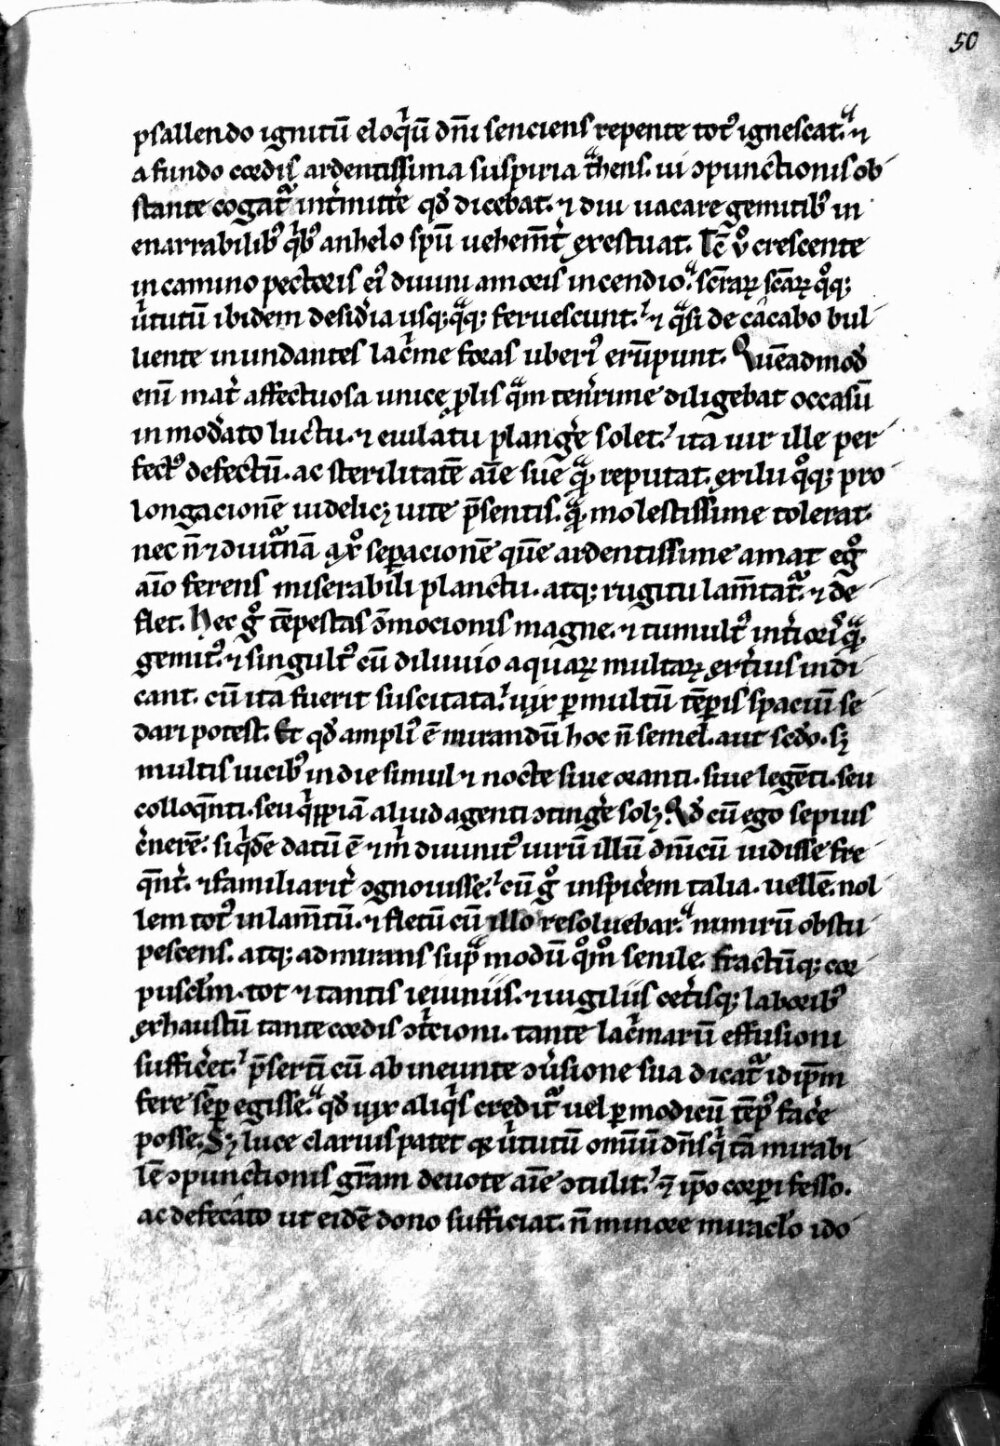 50
psallendo ignitū eloq̇ū dn̄i senciens repente totꝰ ignescat. ⁊
a fundo cordis ardentissima suspiria t̾hens. ui ↄpunctionis ob
stante cogat᷑ int̾mitte᷑ qd̄ dicebat. ⁊ diu uacare gemitibꝰ in
enarrabilibꝰ qͥbꝰ anhelo spū uehem̄t͛ exestuat. Itē ꝟo crescente
in camino pectoris eiꝰ diuini amoris incendio. sc̄raꝝ scāꝝ qͦqꝫ
ỽtutū ibidem desid̾ia usqꝫqͣqꝫ feruescunt. ⁊ qͣsi de cacabo bul
liente inundantes lac̾me foras uberiꝰ erūpunt. Quēadmod̄
enī mat͛ affectuosa unicę ꝓlis qͣm ten͛rime diligebat occasū
inmod̾ato luctu. ⁊ eiulatu plang̾e solet. ita uir ille per
fectꝰ defectū. ac sterilitatē aīe sue qͣꝫ reputat. exilii qͦqꝫ pro
longacionē uidelicꝫ uite p̄sentis. qͣꝫ molestissime tolerat.
nec n̄ ⁊ diut͛nā a xͦ sepacionē quē ardentissime amat egͦ
aīo ferens miserabili planctu. atqꝫ rugitu lam̄tat᷑. ⁊ de
flet. Hec gͦ tēpestas ↄ̄mocionis magne. ⁊ tumultꝰ int̾iorꝫ qͣꝫ
gemitꝰ. ⁊ singultꝰ cū diluuio aquaꝝ multaꝝ ext̾ius indi
cant. cū ita fuerit suscitata. uix ꝑ multū tēpis spaciū se
dari potest. Et qd̄ ampliꝰ ē mirandū hoc n̄ semel. aut sc̄do. sꝫ
multis uicibꝰ in die simul ⁊ nocte siue oranti. siue legēti. seu
colloq̄nti. seu qͥppiā aliud agenti ↄting̾e solꝫ. Qd̄ cū ego sepius
c̾nerē. siqͥdē datū ē ⁊ m̄ diuinitꝰ uirū illū dn̄icū uidisse fre
q̄nt͛. ⁊ familiarit͛ ↄgnouisse. cū gͦ inspic̾em talia. uellē. nol
lem totꝰ in lam̄tū. ⁊ fletū cū illo resoluebar. nimirū obstu
pescens. atqꝫ admirans supͣ modū qͦmͦ senile. fractūqꝫ cor
puscl̄m. tot ⁊ tantis ieiuniis. ⁊ uigiliis cet͛isqꝫ laboribꝰ
exhaustū tante cordis ↄt̾cioni. tante lac̾marū effusioni
suffic̾et. p̄sertī cū ab ineunte ↄu͛sione sua dicat᷑ idip̄m
fere sēp egisse. qd̄ uix aliqͥs credit᷑ uel ꝑ modicū tēpꝰ fac̾e
posse. Sꝫ luce clarius patet qꝫ ỽtutū omiū dn̄s qͥ tā mirabi
lē ↄpunctionis gr̄am deuote aīe ↄtulit. ⁊ ip̄o corpi fesso.
ac defecato ut eidē dono sufficiat. n̄ minore miraclo ido